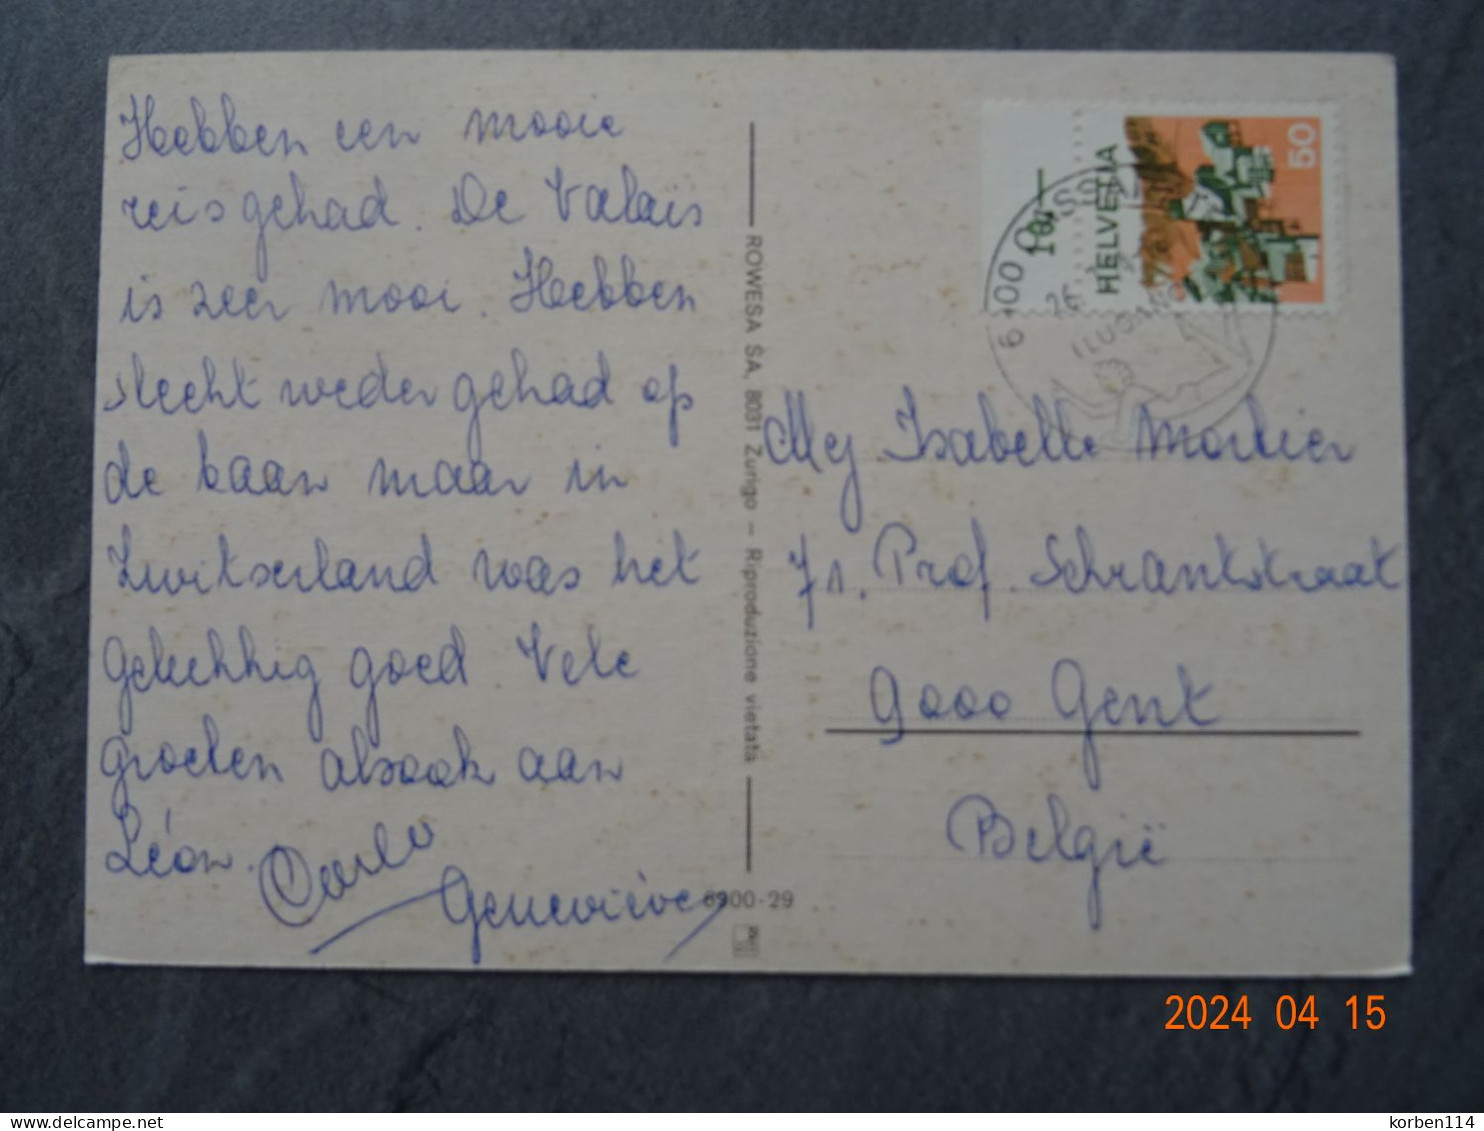 Hebben een mooie
reis gehad. De Valais
is zeer mooi. Hebben
slecht weder gehad op
de baan maar in
Zwitserland was het
gelukkig goed Vele
groeten alsook aan
Léon.
Carlo
Geneviève
ROWESA SA, 8031 Zurigo – Riproduzione vietata
6900-29
10.—
HELVETIA
50
6900
26
LUGANO
Mej Isabelle Mortier
71. Prof. Schrantstraat
9000 Gent
België
2024 04 15
delcampe.net
korben114